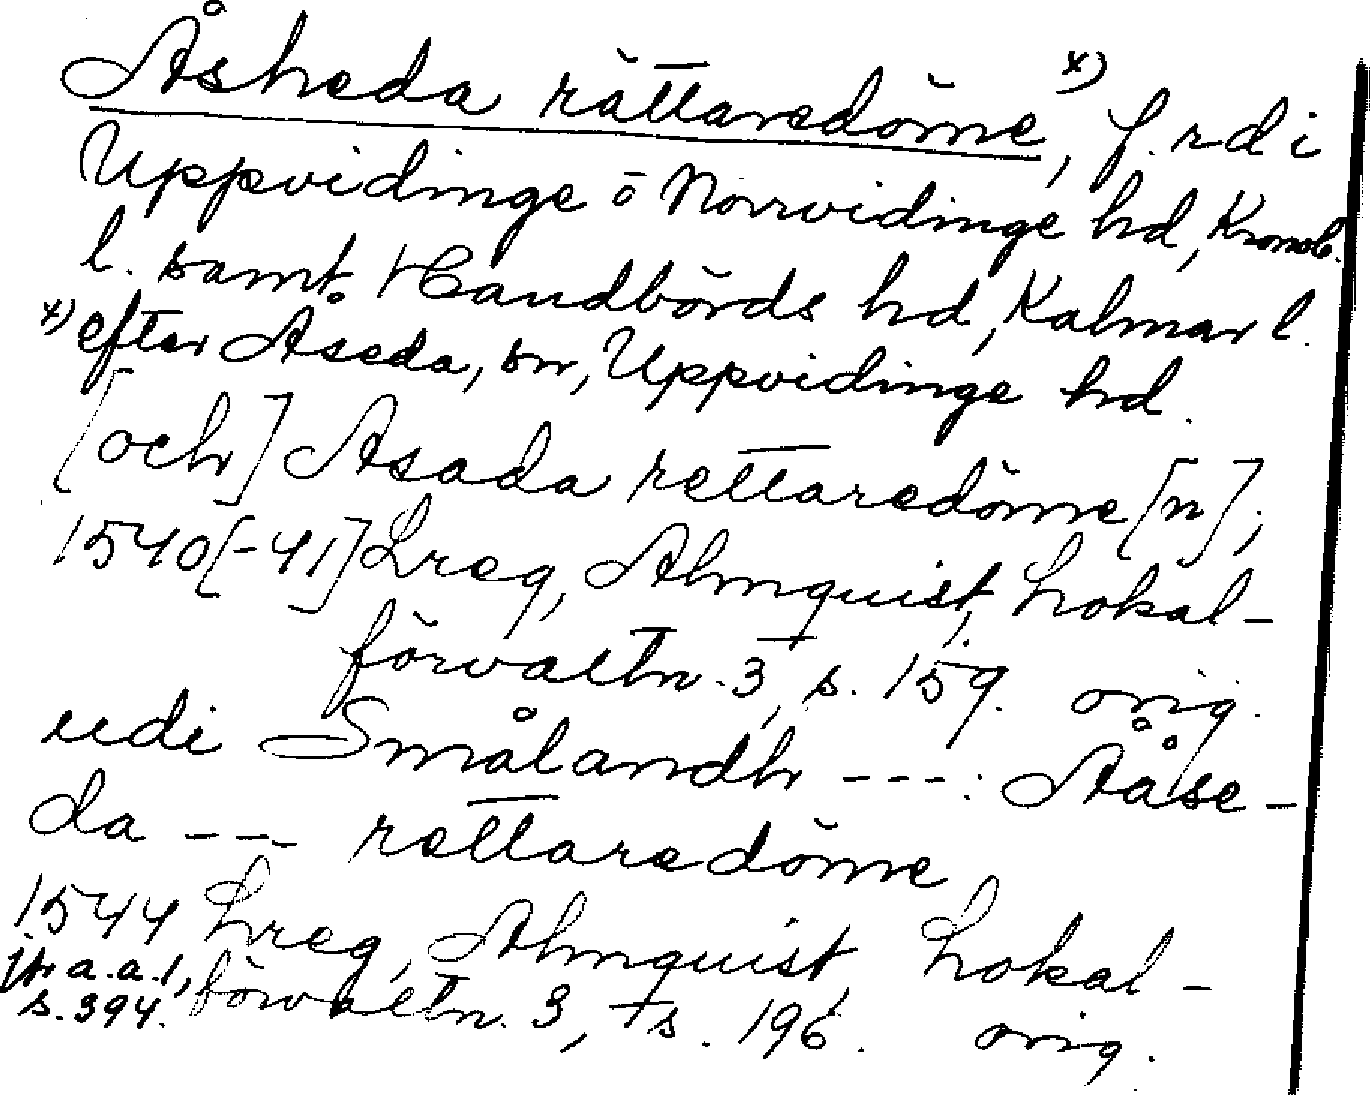 Åsheda rättaredöme x), f.rd i
Uppvidinge o Norrvidinge hd, Kronob.
l. samt Handbörds hd, Kalmar l.
x) efter Åseda, sn, Uppvidinge hd.
[och] Asada rettaredöme[n],
1540[-41] Lreg, Almquist, Lokal-
förvaltn. 3, s. 159. orig.
udi Smålandh ---: Åååse-
da --- rettaredöme,
1544 Lreg, Almquist, Lokal-
jfr a.a.1, förvaltn. 3, s. 196. orig.
s. 394.